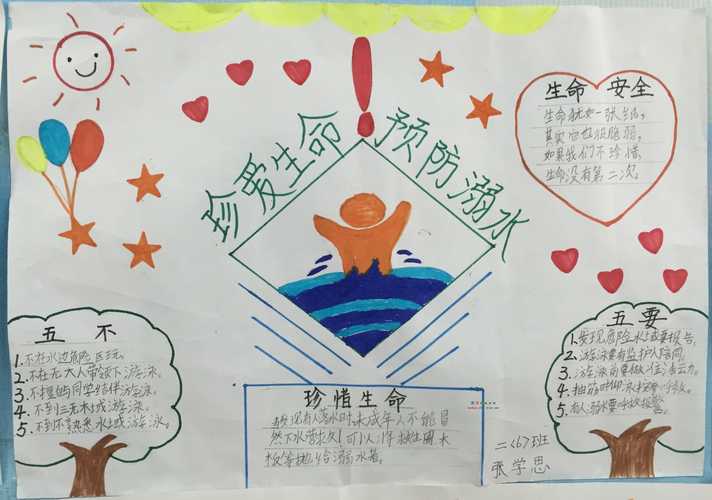 珍爱生命
预防溺水
生命 安全
生命犹如一张纸，
其实它也很脆弱，
如果我们不珍惜，
生命没有第二次。
五 不
1.不在水边危险区玩。
2.不在无大人带领下游泳。
3.不擅自与同学结伴游泳。
4.不到三无水域游泳。
5.不到不熟悉水域游泳。
五要
1.发现危险水域要报告。
2.游泳要有监护人陪同。
3.游泳前要做
4.抽筋时仰
5.有人溺水要呼救报警。
珍惜生命
发现有人落水时，未成年人不能冒
然下水营救！可以将救生圈木
板等抛给溺水者。
二〈6〉班
张学思